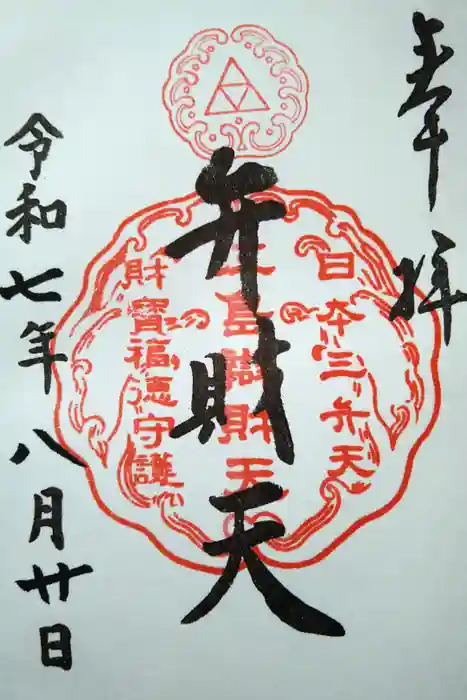 奉拝
日本三弁天
弁財天
島
財天
財寶福徳守護
令和七年八月廿日